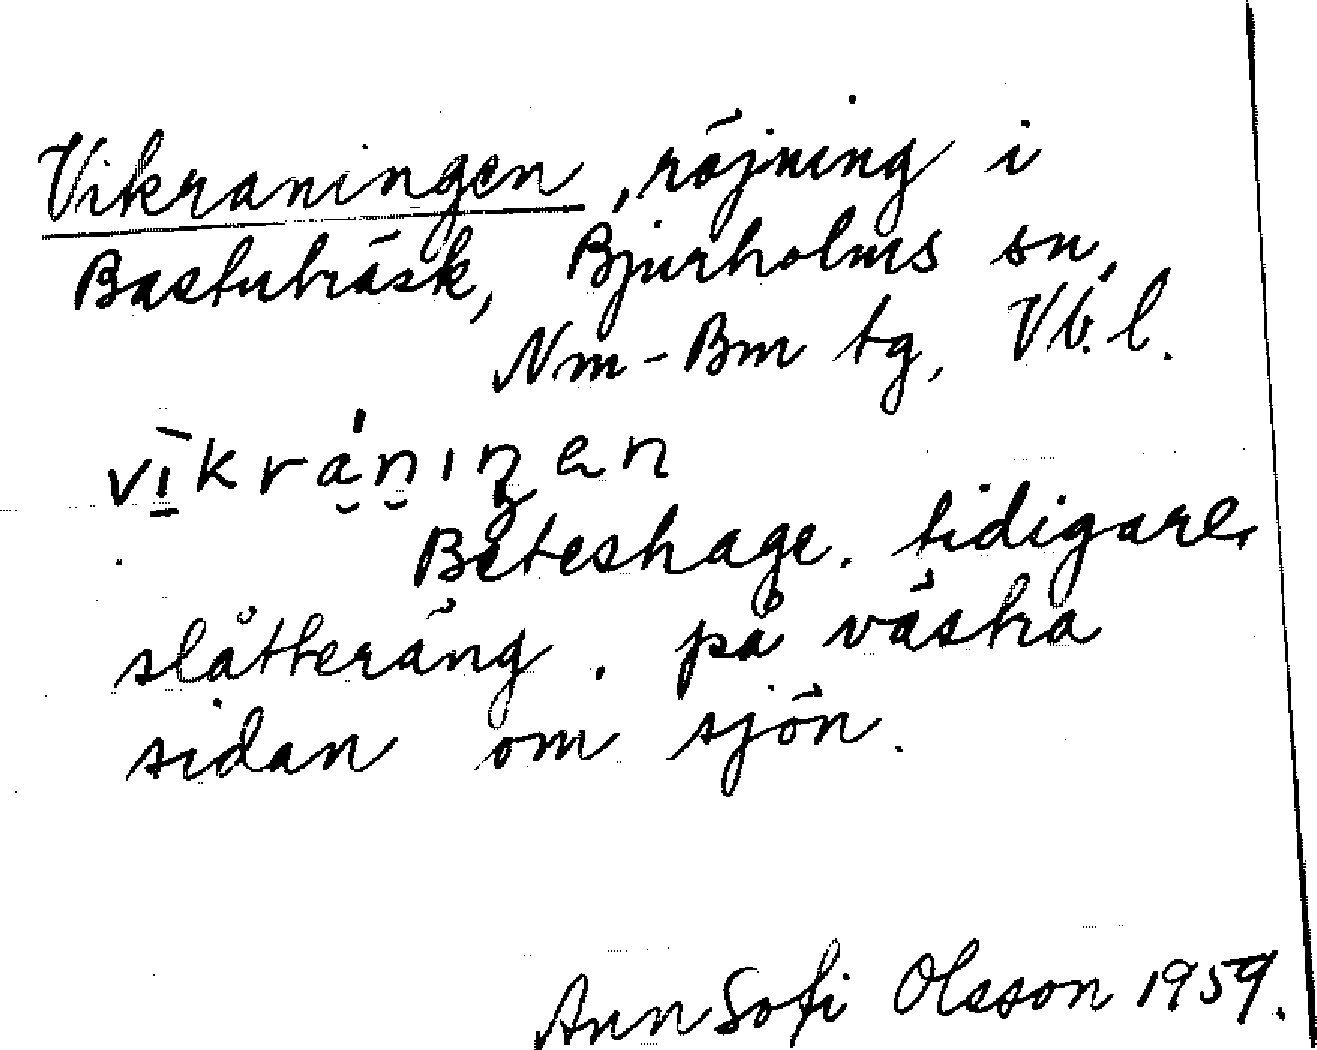 Vikraningen, röjning i
Bastuträsk, Bjurholms sn,
Nm-Bm tg, Vb. l.
Beteshage. tidigare
slåtteräng. på västra
sidan om sjön.
Ann Sofi Olsson 1959.